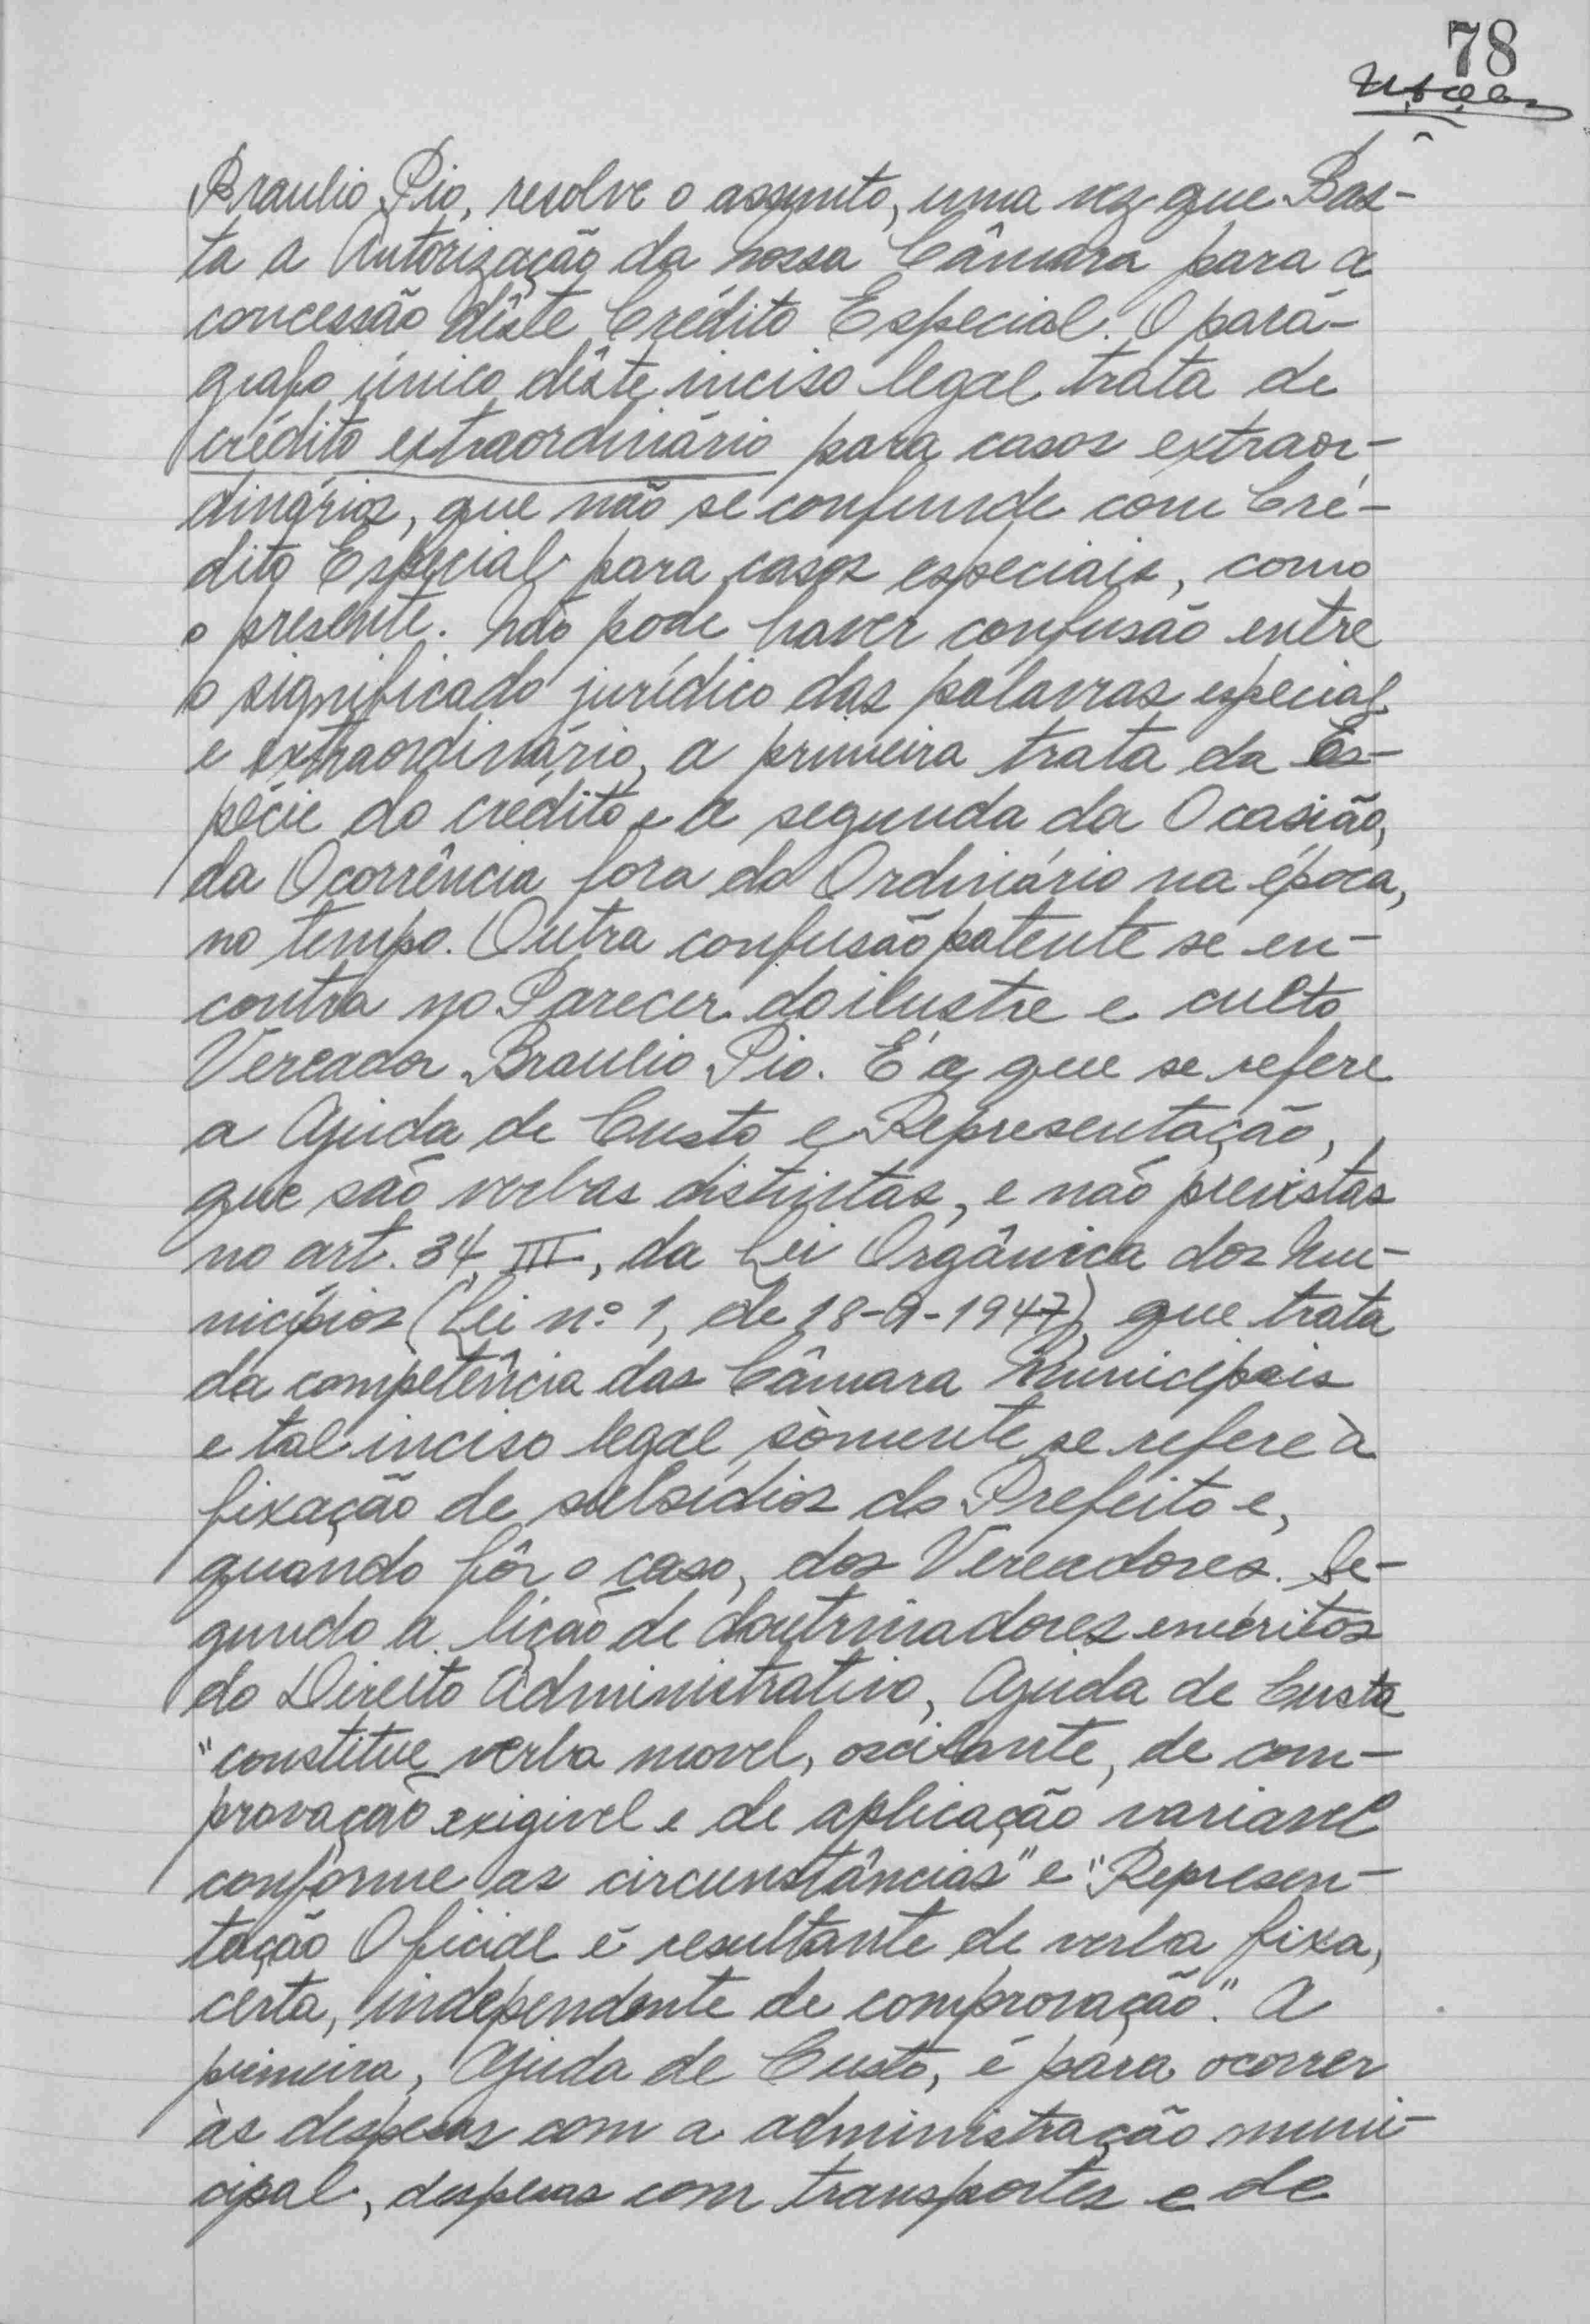 78
Braulio Pio, resolve o assunto, uma vez que Bas-
ta a Autorização da nossa Câmara para a
concessão dêste Crédito Especial. O pará-
grafo único dêste inciso legal trata de
crédito extraordinário para casos extraor-
dinários, que não se confunde com Cré-
dito Especial para casos especiais, como
o presente. Não pode haver confusão entre
o significado jurídico das palavras especial
e extraordinário, a primeira trata da Es-
pécie do crédito e a segunda da Ocasião,
da Ocorrência fora do Ordinário na época,
no tempo. Outra confusão patente se en-
contra no Parecer do ilustre e culto
Vereador Braulio Pio. É a que se refere
a Ajuda de Custo e Representação,
que são verbas distintas, e não previstas
no art. 34, III, da Lei Orgânica dos Mu-
nicípios (Lei nº 1, de 18-9-1947), que trata
da competência das Câmara Municipais
e tal inciso legal sòmente se refere à
fixação de subsídios do Prefeito e,
quando fôr o caso, dos Vereadores. Se-
gundo a lição de doutrinadores eméritos
do Direito Administrativo, Ajuda de Custo
"constitue verba movel, oscilante, de com-
provação exigivel e de aplicação variavel
conforme as circunstâncias" e "Represen-
tação Oficial é resultante de verba fixa,
certa, independente de comprovação". A
primeira, Ajuda de Custo, é para ocorrer
às despesas com a administração muni-
cipal, despesas com transportes e de